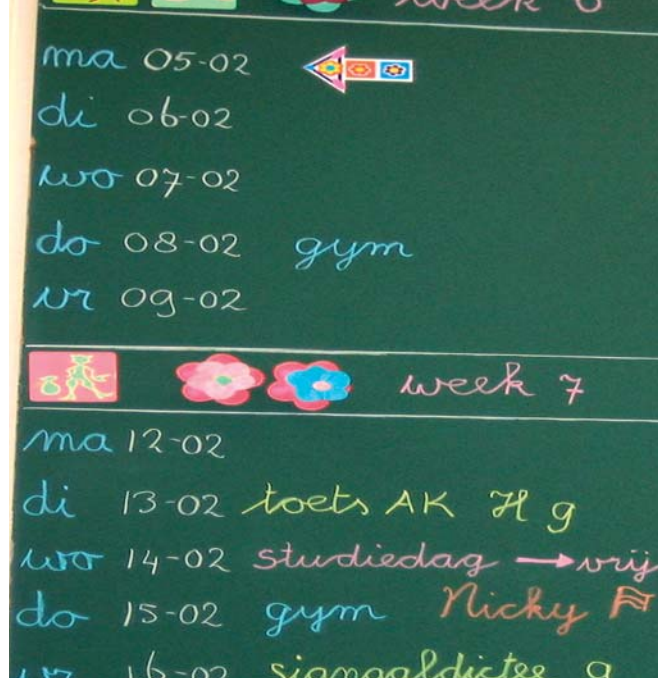 week 6
ma 05-02
di 06-02
wo 07-02
do 08-02 gym
vr 09-02
week 7
ma 12-02
di 13-02 toets AK H g
wo 14-02 studiedag → vrij
do 15-02 gym Nicky
vr 16-02 signaaldictee g